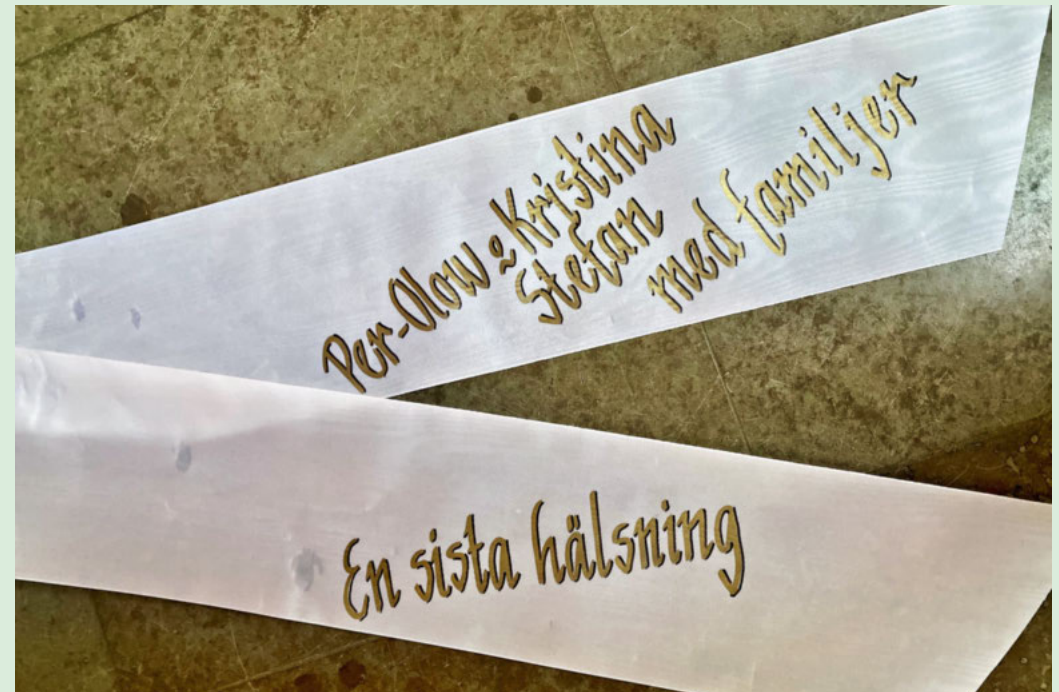 Per-Olow & Kristina
Stefan
med familjer
En sista hälsning